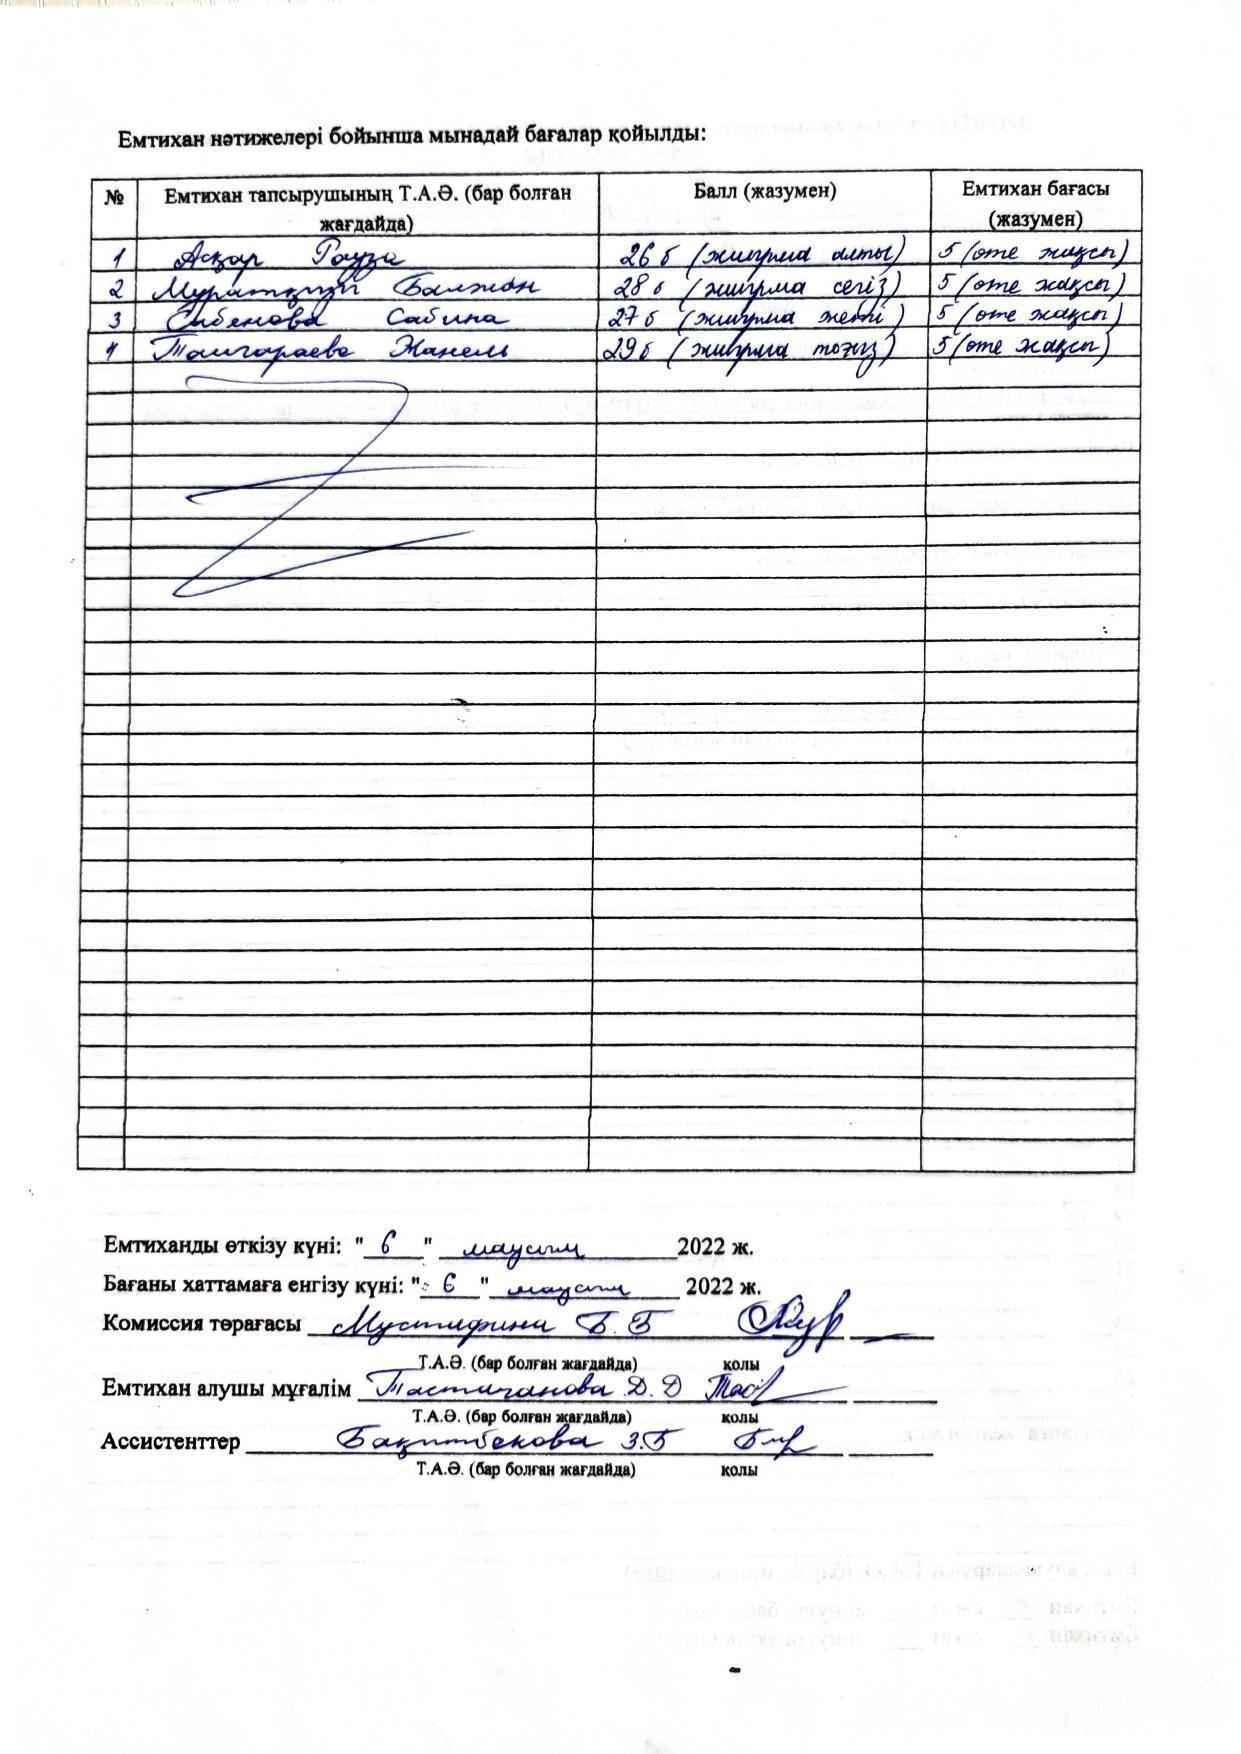 Емтихан нәтижелері бойынша мынадай бағалар қойылды:
№ Емтихан тапсырушының Т.А.Ә. (бар болған жағдайда) Балл (жазумен) Емтихан бағасы (жазумен)
1 Асқар Рауза 26 б (жиырма алты) 5 (өте жақсы)
2 Муратқызы Балжан 28 б (жиырма сегіз) 5 (өте жақсы)
3 Сабина 27 б (жиырма жеті) 5 (өте жақсы)
4 Жанель 29 б (жиырма тоғыз) 5 (өте жақсы)
Емтиханды өткізу күні: "6" маусым 2022 ж.
Бағаны хаттамаға енгізу күні: "6" маусым 2022 ж.
Комиссия төрағасы Мустафина Б.Б
Т.А.Ә. (бар болған жағдайда) қолы
Емтихан алушы мұғалім Д.Д
Т.А.Ә. (бар болған жағдайда) қолы
Ассистенттер Бақытбекова З.Б
Т.А.Ә. (бар болған жағдайда) қолы